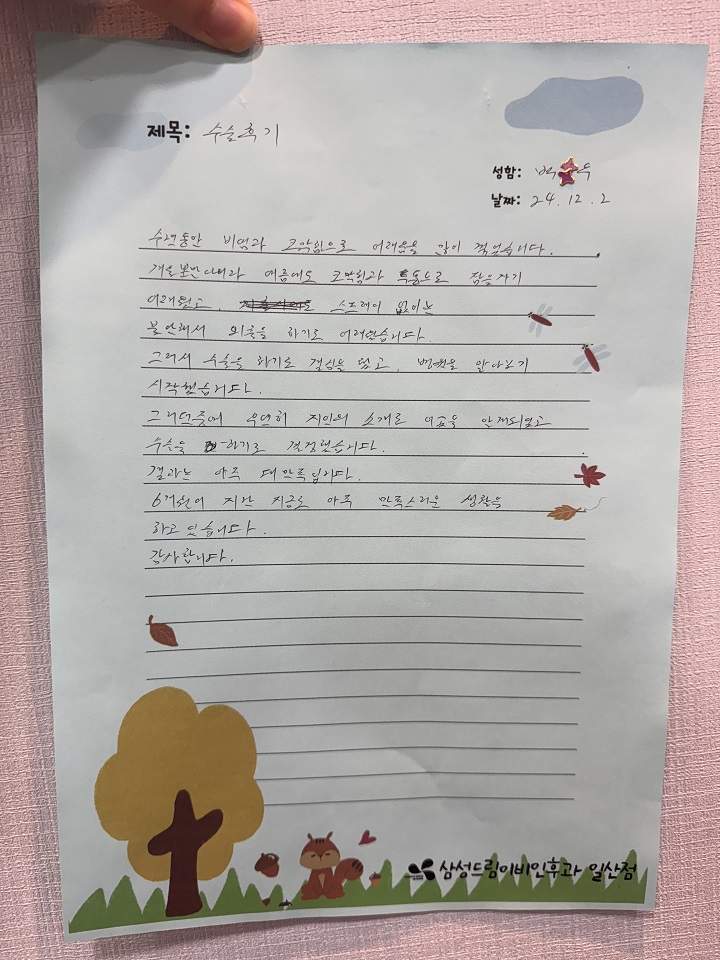 제목: 수술후기
성함: 백 우
날짜: 24. 12. 2
수년동안 비염과 코막힘으로 어려움을 많이 겪었습니다.
겨울뿐만 아니라 여름에도 코막힘과 두통으로 잠을자기
어려웠고, 스프레이 없이는
불안해서 외출을 하기도 어려웠습니다.
그래서 수술을 하기로 결심을 했고, 병원을 알아보기
시작했습니다.
그러던중에 우연히 지인의 소개로 이곳을 알게되었고
수술을 하기로 결정했습니다.
결과는 아주 대만족입니다.
6개월이 지난 지금도 아주 만족스러운 생활을
하고있습니다.
감사합니다.
삼성드림이비인후과 일산점